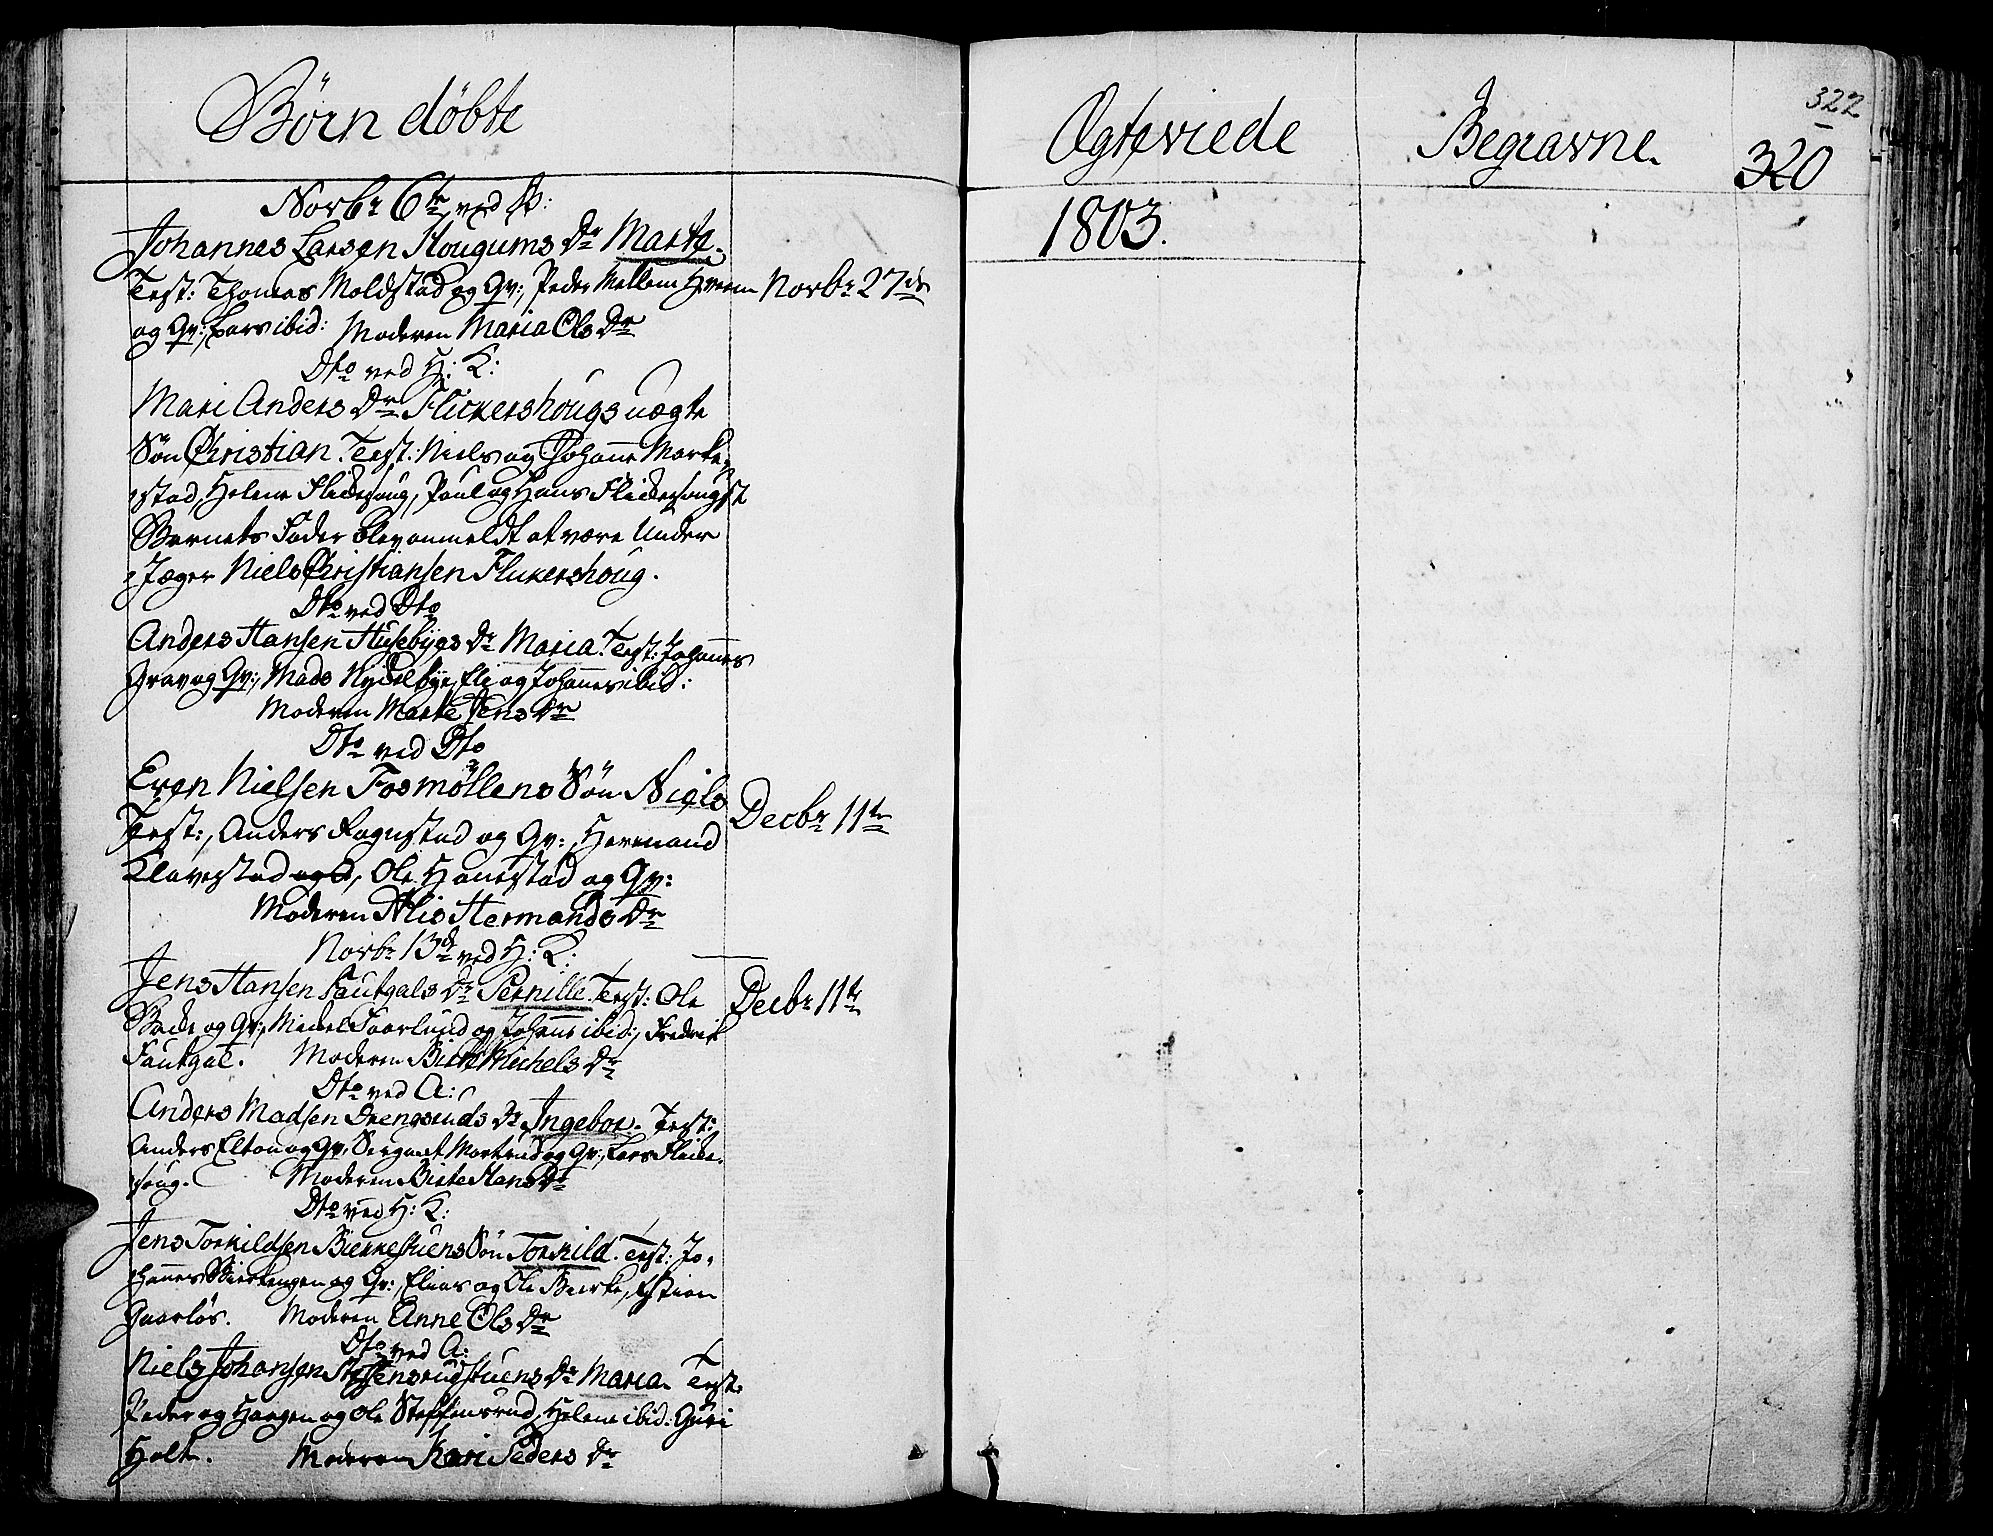 Børn døbte
Novbr 6te ved A:
Johannes Larsen Hougums Dr Marte.
Test: Thomas Moldstad og Qv:, Peder Mellem Hveem Novbr 27de
og Qv:, Lars ibid: Moderen Maria Ols Dr
Dto ved H: K:
Mari Anders Dr Flickershougs uægte
Søn Christian. Test: Niels og Johanne Marke-
stad, Helene Flickeshoug, Poul og Hans
Barnets Fader blev anmeldt at være Under
Jæger Niels Christiansen Flickershoug.
Dto ved Dto
Anders Hansen Husebyes Dr Maria. Test: Johannes
Grav og Qv:, Mads Hydelbye, Eli og Johannes ibid:
Moderen Marte Jens Dr
Dto ved Dto
Even Nielsen Fosmøllens Søn Niels
Test:, Anders Rognstad og Qv:, Hermand Decbr 11te
Klavestad, Ole Hanestad og Qv:
Moderen Alis Hermands Dr
Novbr 13de ved H: K:
Jens Hansen Fautgals Dr Pernille. Test: Ole Decbr 11te
Bache og Qv:, Michel Faarlund og Johanne ibid:, Fredrik
Fautgal. Moderen Birte Michels Dr
Dto ved A:
Anders Madsen Drengsruds Dr Ingebor. Test:
Anders Elton og Qv, Sergeant Mortrud og Qv:, Lars Flicke-
houg. Moderen Birte Hans Dr
Dto ved H: K:
Jens Torkildsen Bierkestuens Søn Torkild. Test: Jo-
hannes Bierkengen og Qv:, Elias og Ole Bierke, Kistien
Gaarløs. Moderen Anne Ols Dr
Dto ved A:
Niels Johansen Steffensrudstuens Dr Maria. Test:
Peder og Haagen og Ole Steffensrud, Helene ibid: Guri
Holt. Moderen Kari Peders Dr
Ægteviede
Begravne.
322
320
1803.